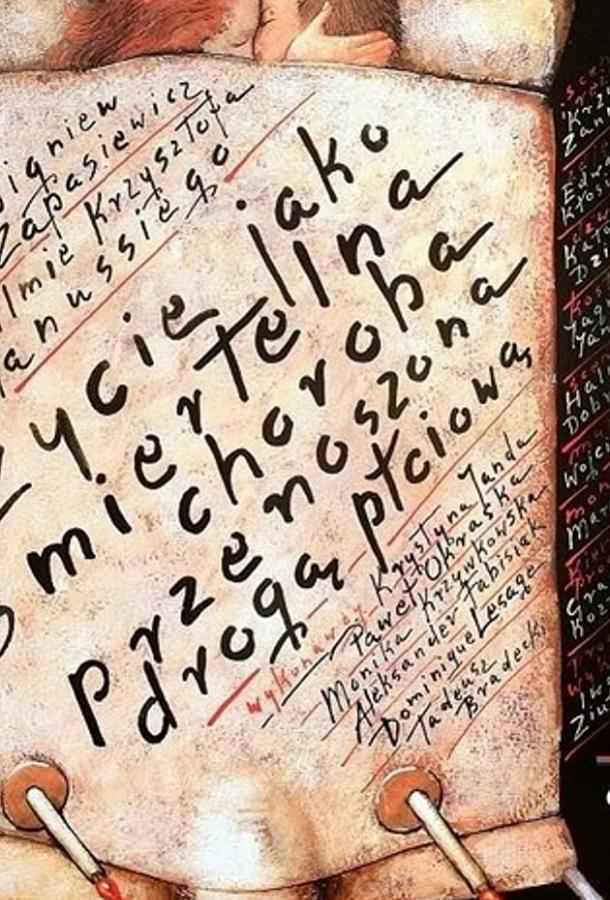 igniew
Zapasiewicz
lmie Krzysztofa
anussiego
życie jako
śmiertelna
choroba
przenoszona
drogą płciową
wykonawcy Krystyna Janda
Paweł Okraska
Monika Krzywkowska
Aleksander Fabisiak
Dominique Lesage
Tadeusz
Bradecki
sce
Krz
Zan
Edw
Kłos
Dzi
kos
Jag
Hali
Dob
Wojci
Mar
Gra
Koz
Iw
Ziu